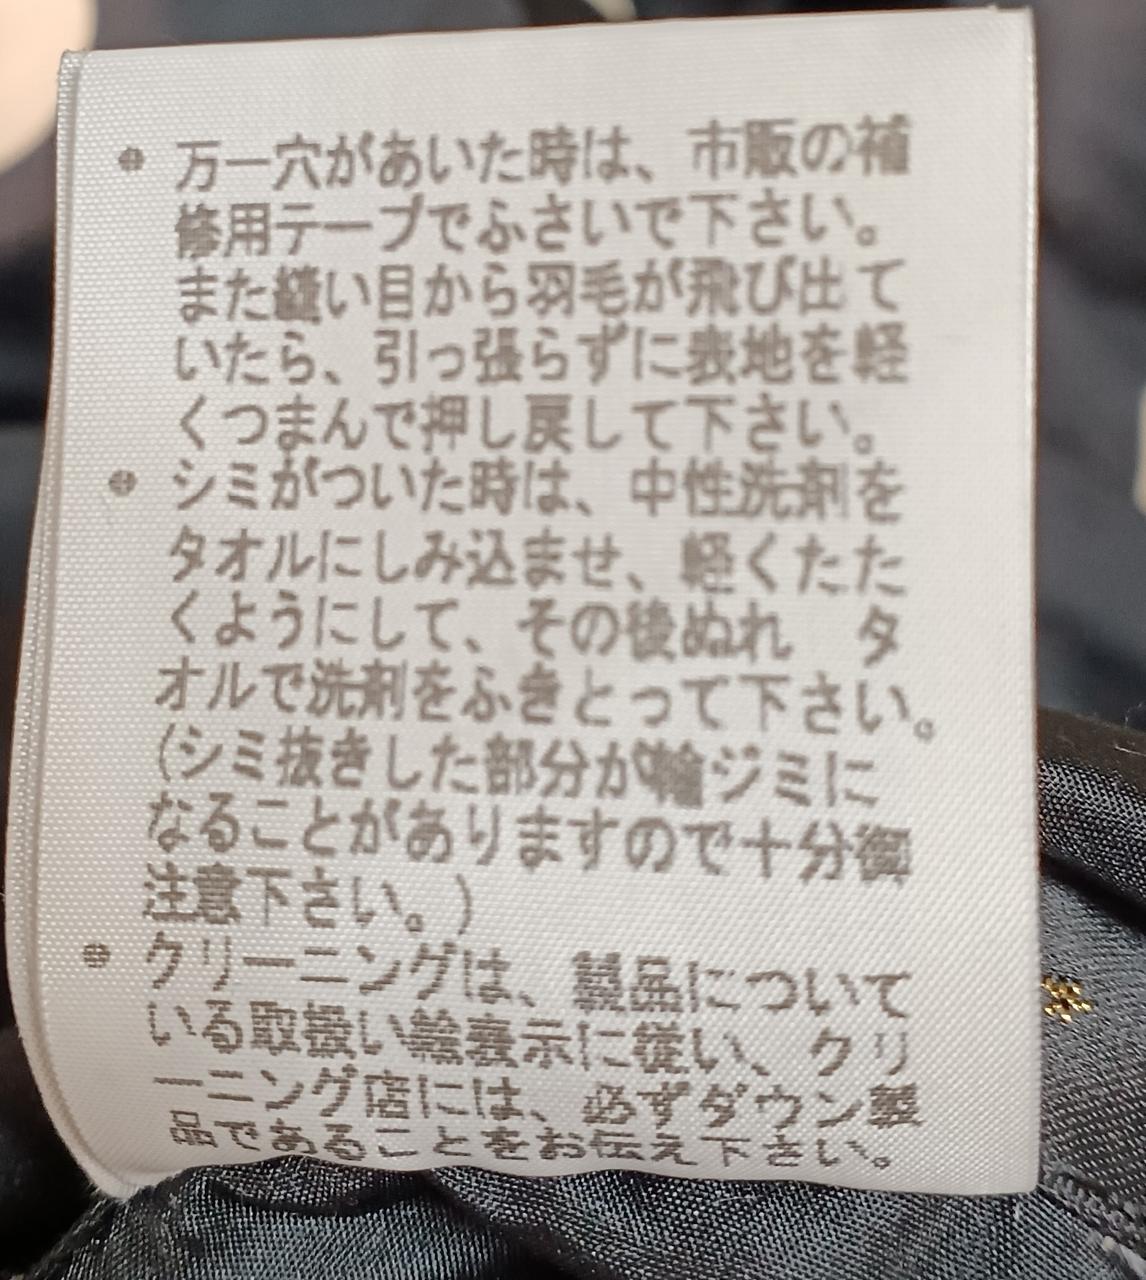 ● 万一穴があいた時は、市販の補
修用テープでふさいで下さい。
また縫い目から羽毛が飛び出て
いたら、引っ張らずに表地を軽
くつまんで押し戻して下さい。
● シミがついた時は、中性洗剤を
タオルにしみ込ませ、軽くたた
くようにして、その後ぬれ タ
オルで洗剤をふきとって下さい。
(シミ抜きした部分が輪ジミに
なることがありますので十分御
注意下さい。)
● クリーニングは、製品について
いる取扱い絵表示に従い、クリ
ーニング店には、必ずダウン製
品であることをお伝え下さい。